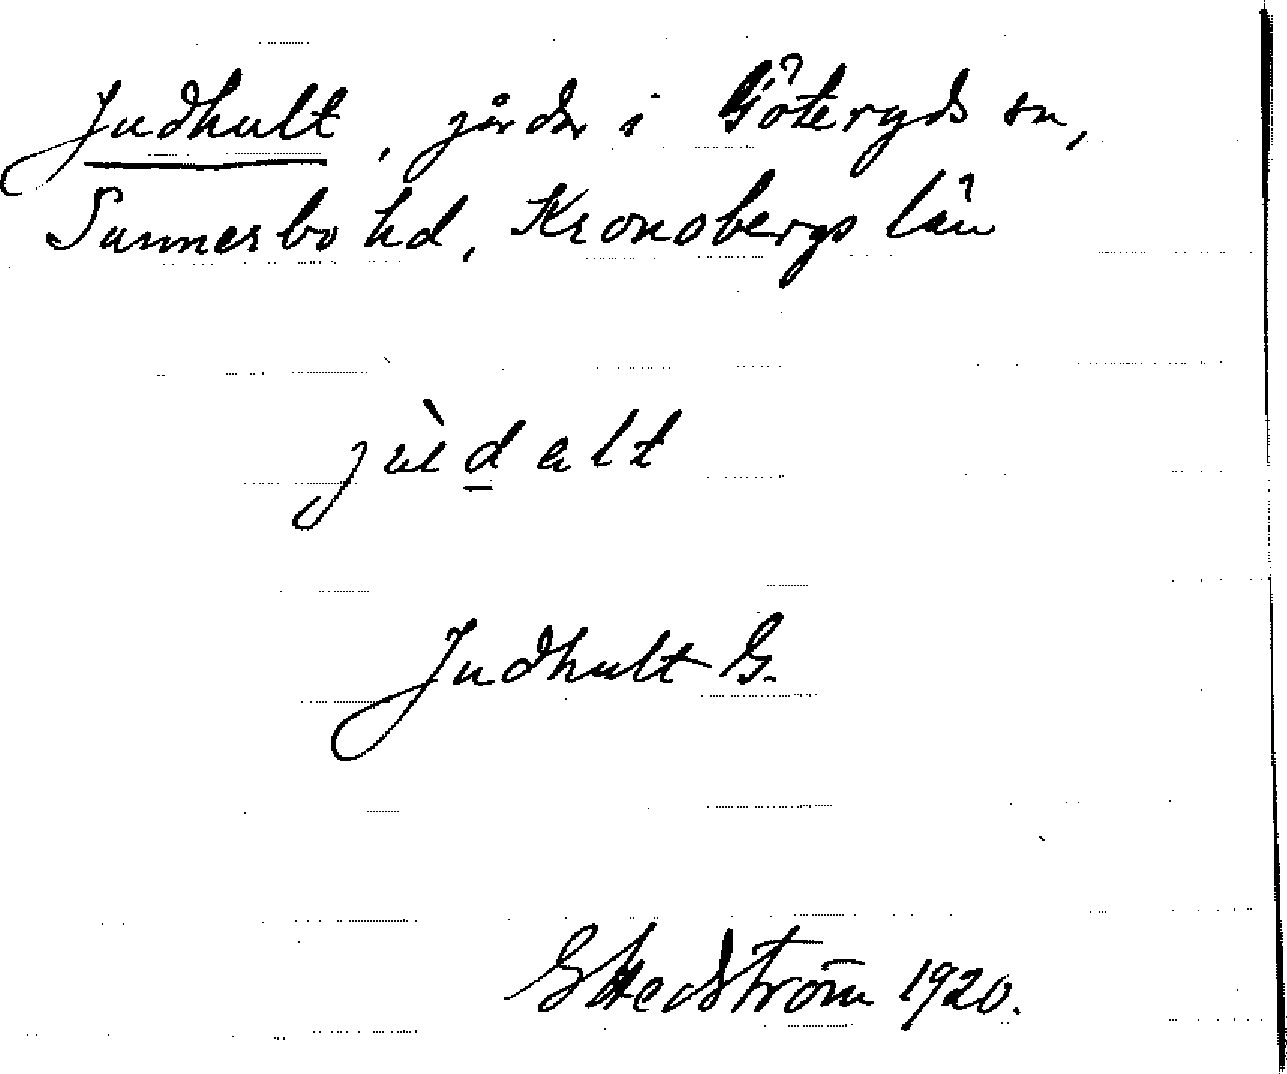 Judhult, gårdar i Göteryds sn,
Sunnerbo hd, Kronobergs län
jùdalt
Judhult G.
G Hedström 1920.